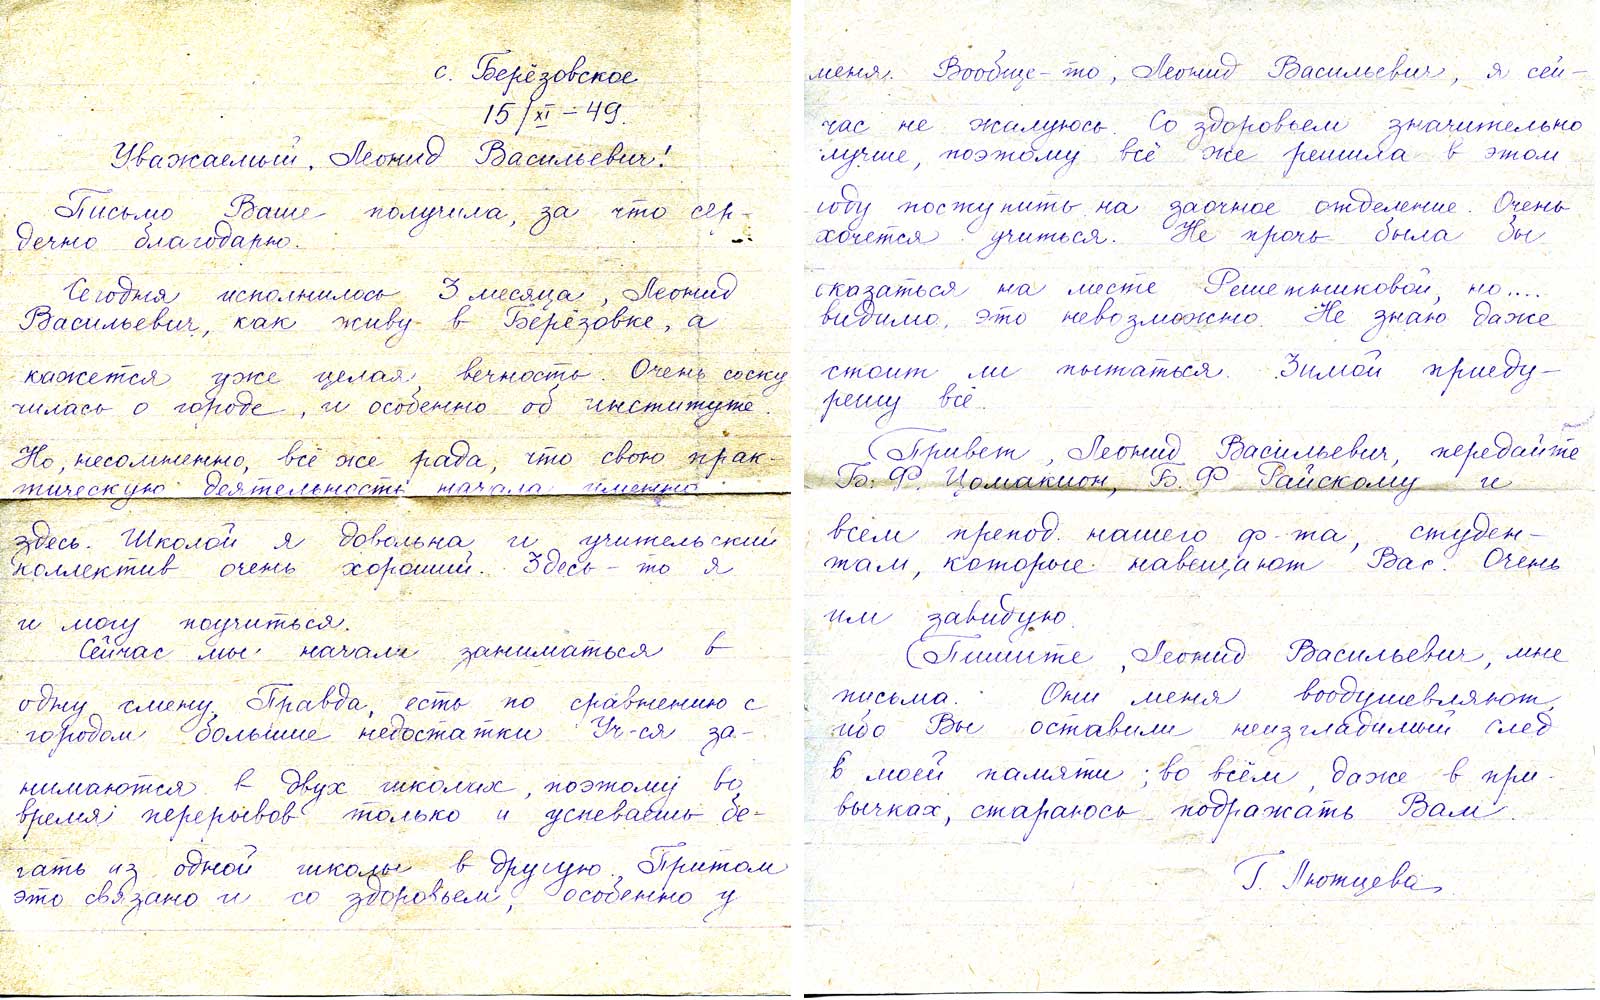 с. Берёзовское
15/XI – 49.
Уважаемый, Леонид Васильевич!
Письмо Ваше получила, за что сер-
дечно благодарю.
Сегодня исполнилось 3 месяца, Леонид
Васильевич, как живу в Берёзовке, а
кажется уже целая вечность. Очень соску
чилась о городе, и особенно об институте.
Но, несомненно, всё же рада, что свою прак-
тическую деятельность начала именно
здесь. Школой я довольна и учительский
коллектив очень хороший. Здесь-то я
и могу поучиться.
Сейчас мы начали заниматься в
одну смену. Правда, есть по сравнению с
городом большие недостатки. Уч-ся за-
нимаются в двух школах, поэтому во
время перерывов только и успеваешь бе-
гать из одной школы в другую. Притом
это связано и со здоровьем, особенно у
меня. Вообще-то, Леонид Васильевич, я сей-
час не жалуюсь. Со здоровьем значительно
лучше, поэтому всё же решила в этом
году поступить на заочное отделение. Очень
хочется учиться. Не прочь была бы
оказаться на месте Решетниковой, но....
видимо, это невозможно. Не знаю даже
стоит ли пытаться. Зимой приеду-
решу всё.
Привет, Леонид Васильевич, передайте
Б. Ф. Цомакион, Б. Ф Райскому и
всем препод. нашего ф-та, студен-
там, которые навещают Вас. Очень
им завидую.
Пишите, Леонид Васильевич, мне
письма. Они меня воодушевляют,
ибо Вы оставили неизгладимый след
в моей памяти; во всём, даже в при-
вычках, стараюсь подражать Вам.
Г. Лютцева